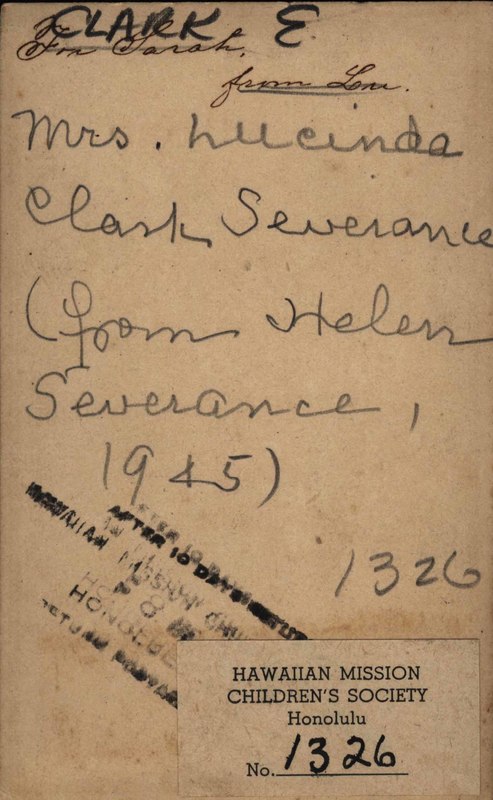 CLARK E
For Sarah,
from Lou.
Mrs. Lucinda
Clark Severance
(from Helen
Severance,
1945)
AFTER 10 DAYS
HAWAIIAN MISSION
HONOLULU
1326
HAWAIIAN MISSION
CHILDREN'S SOCIETY
Honolulu
No. 1326